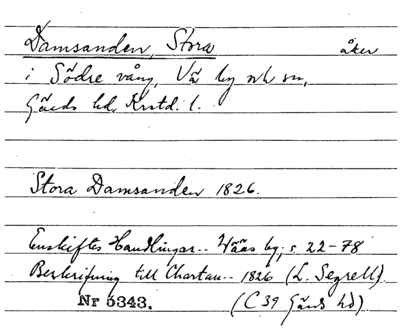 Damsanden, Stora åker
i Södre vång, Vä by och sn,
Gärds hd, Krstd. l.
Stora Damsanden 1826.
Enskiftes Handlingar.. Wääs by; s. 22-78
Beskrifning till Chartan.. 1826 (L. Segrell).
Nr 5343. (C 39 Gärds hd)